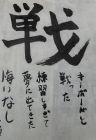 戦
キーパーし
戦った
練習しすぎて
夢に出てきた
悔いなし